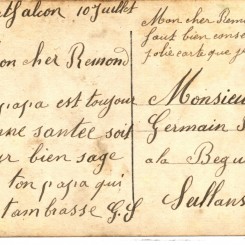 falcon 10 Juillet
mon cher Remond
papa est toujour
bonne santee soit
bien sage
ton papa qui
tambrasse G.S
Mon cher Remo
faut bien conse
jolie carte que j
Monsieu
Germain S
a la Begu
Seillans